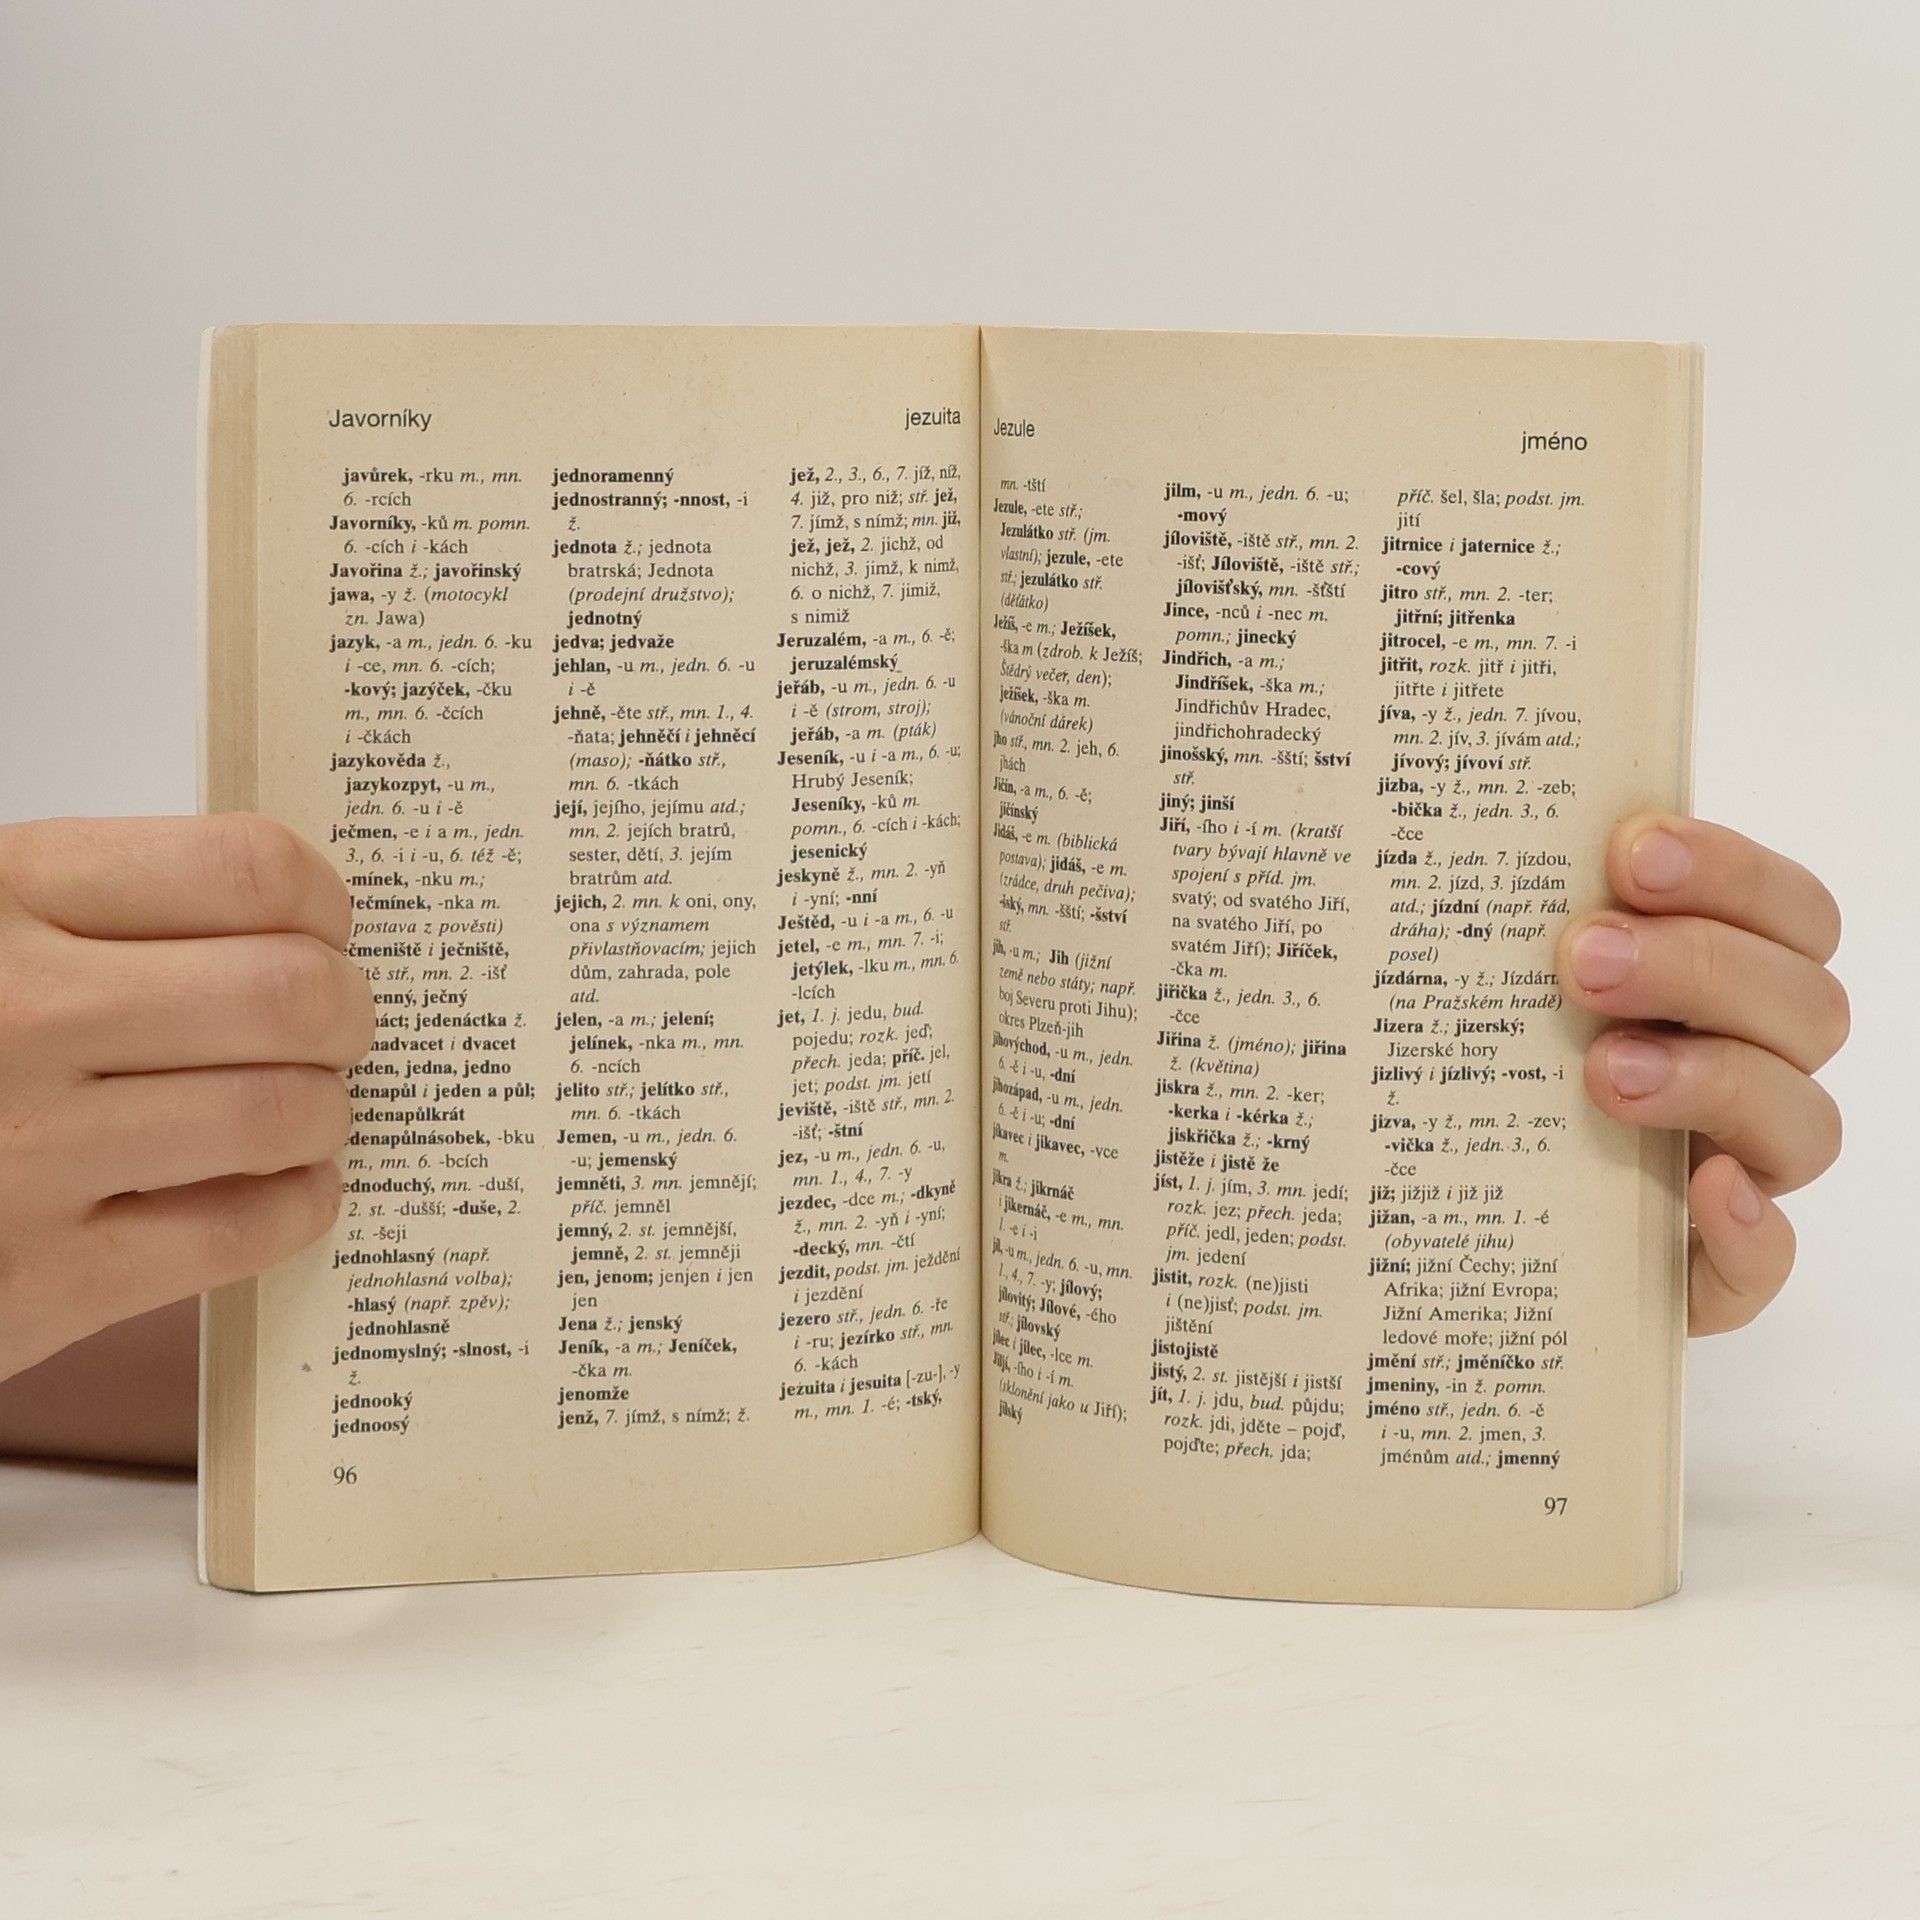 Javorníky
jezuita
javůrek, -rku m., mn.
6. -rcích
Javorníky, -ků m. pomn.
6. -cích i -kách
Javořina ž.; javořinský
jawa, -y ž. (motocykl
zn. Jawa)
jazyk, -a m., jedn. 6. -ku
i -ce, mn. 6. -cích;
-kový; jazýček, -čku
m., mn. 6. -čcích
i -čkách
jazykověda ž.,
jazykozpyt, -u m.,
jedn. 6. -u i -ě
ječmen, -e i a m., jedn.
3., 6. -i i -u, 6. též -ě;
-mínek, -nku m.;
Ječmínek, -nka m.
(postava z pověsti)
ječmeniště i ječniště,
stř., mn. 2. -išť
ječný
jedenáctka ž.
i dvacet
jeden, jedna, jedno
jedenapůl i jeden a půl;
jedenapůlkrát
jedenapůlnásobek, -bku
m., mn. 6. -bcích
jednoduchý, mn. -duší,
2. st. -dušší; -duše, 2.
st. -šeji
jednohlasný (např.
jednohlasná volba);
-hlasý (např. zpěv);
jednohlasně
jednomyslný; -slnost, -i
ž.
jednooký
jednoosý
jednoramenný
jednostranný; -nnost, -i
ž.
jednota ž.; jednota
bratrská; Jednota
(prodejní družstvo);
jednotný
jedva; jedvaže
jehlan, -u m., jedn. 6. -u
i -ě
jehně, -ěte stř., mn. 1., 4.
-ňata; jehněčí i jehněcí
(maso); -ňátko stř.,
mn. 6. -tkách
její, jejího, jejímu atd.;
mn. 2. jejích bratrů,
sester, dětí, 3. jejím
bratrům atd.
jejich, 2. mn. k oni, ony,
ona s významem
přivlastňovacím; jejich
dům, zahrada, pole
atd.
jelen, -a m.; jelení;
jelínek, -nka m., mn.
6. -ncích
jelito stř.; jelítko stř.,
mn. 6. -tkách
Jemen, -u m., jedn. 6.
-u; jemenský
jemněti, 3. mn. jemnějí;
příč. jemněl
jemný, 2. st. jemnější,
jemně, 2. st. jemněji
jen, jenom; jenjen i jen
jen
Jena ž.; jenský
Jeník, -a m.; Jeníček,
-čka m.
jenomže
jenž, 7. jímž, s nímž; ž.
jež, 2., 3., 6., 7. jíž, níž,
4. již, pro niž; stř. jež,
7. jímž, s nímž; mn. již,
jež, jež, 2. jichž, od
nichž, 3. jimž, k nimž,
6. o nichž, 7. jimiž,
s nimiž
Jeruzalém, -a m., 6. -ě;
jeruzalémský
jeřáb, -u m., jedn. 6. -u
i -ě (strom, stroj);
jeřáb, -a m. (pták)
Jeseník, -u i -a m., 6. -u;
Hrubý Jeseník;
Jeseníky, -ků m.
pomn., 6. -cích i -kách;
jesenický
jeskyně ž., mn. 2. -yň
i -yní; -nní
Ještěd, -u i -a m., 6. -u
jetel, -e m., mn. 7. -i;
jetýlek, -lku m., mn. 6.
-lcích
jet, 1. j. jedu, bud.
pojedu; rozk. jeď;
přech. jeda; příč. jel,
jet; podst. jm. jetí
jeviště, -iště stř., mn. 2.
-išť; -štní
jez, -u m., jedn. 6. -u,
mn. 1., 4., 7. -y
jezdec, -dce m.; -dkyně
ž., mn. 2. -yň i -yní;
-decký, mn. -čtí
jezdit, podst. jm. ježdění
i jezdění
jezero stř., jedn. 6. -ře
i -ru; jezírko stř., mn.
6. -kách
jezuita i jesuita [-zu-], -y
m., mn. 1. -é; -tský,
96
Jezule
jméno
mn. -tští
Jezule, -ete stř.;
Jezulátko stř. (jm.
vlastní); jezule, -ete
stř.; jezulátko stř.
(děťátko)
Ježíš, -e m.; Ježíšek,
-ška m (zdrob. k Ježíš;
Štědrý večer, den);
ježíšek, -ška m.
(vánoční dárek)
jho stř., mn. 2. jeh, 6.
jhách
Jičín, -a m., 6. -ě;
jičínský
Jidáš, -e m. (biblická
postava); jidáš, -e m.
(zrádce, druh pečiva);
-šský, mn. -šští; -šství
stř.
jih, -u m.; Jih (jižní
země nebo státy; např.
boj Severu proti Jihu);
okres Plzeň-jih
jihovýchod, -u m., jedn.
6. -ě i -u, -dní
jihozápad, -u m., jedn.
6. -ě i -u; -dní
jíkavec i jikavec, -vce
m.
jikra ž.; jikrnáč
i jikernáč, -e m., mn.
1. -e i -i
jíl, -u m., jedn. 6. -u, mn.
1., 4., 7. -y; jílový;
jílovitý; Jílové, -ého
stř.; jílovský
jílec i jilec, -lce m.
Jiljí, -ího i -í m.
(sklonění jako u Jiří);
jilský
jilm, -u m., jedn. 6. -u;
-mový
jíloviště, -iště stř., mn. 2.
-išť; Jíloviště, -iště stř.;
jílovišťský, mn. -šťští
Jince, -nců i -nec m.
pomn.; jinecký
Jindřich, -a m.;
Jindříšek, -ška m.;
Jindřichův Hradec,
jindřichohradecký
jinošský, mn. -šští; šství
stř.
jiný; jinší
Jiří, -ího i -í m. (kratší
tvary bývají hlavně ve
spojení s příd. jm.
svatý; od svatého Jiří,
na svatého Jiří, po
svatém Jiří); Jiříček,
-čka m.
jiřička ž., jedn. 3., 6.
-čce
Jiřina ž. (jméno); jiřina
ž. (květina)
jiskra ž., mn. 2. -ker;
-kerka i -kérka ž.;
jiskřička ž.; -krný
jistěže i jistě že
jíst, 1. j. jím, 3. mn. jedí;
rozk. jez; přech. jeda;
příč. jedl, jeden; podst.
jm. jedení
jistit, rozk. (ne)jisti
i (ne)jisť; podst. jm.
jištění
jistojistě
jistý, 2. st. jistější i jistší
jít, 1. j. jdu, bud. půjdu;
rozk. jdi, jděte – pojď,
pojďte; přech. jda;
příč. šel, šla; podst. jm.
jití
jitrnice i jaternice ž.;
-cový
jitro stř., mn. 2. -ter;
jitřní; jitřenka
jitrocel, -e m., mn. 7. -i
jitřit, rozk. jitř i jitři,
jitřte i jitřete
jíva, -y ž., jedn. 7. jívou,
mn. 2. jív, 3. jívám atd.;
jívový; jívoví stř.
jizba, -y ž., mn. 2. -zeb;
-bička ž., jedn. 3., 6.
-čce
jízda ž., jedn. 7. jízdou,
mn. 2. jízd, 3. jízdám
atd.; jízdní (např. řád,
dráha); -dný (např.
posel)
jízdárna, -y ž.;
(na Pražském hradě)
Jizera ž.; jizerský;
Jizerské hory
jizlivý i jízlivý; -vost, -i
ž.
jizva, -y ž., mn. 2. -zev;
-vička ž., jedn. 3., 6.
-čce
již; jižjiž i již již
jižan, -a m., mn. 1. -é
(obyvatelé jihu)
jižní; jižní Čechy; jižní
Afrika; jižní Evropa;
Jižní Amerika; Jižní
ledové moře; jižní pól
jmění stř.; jměníčko stř.
jmeniny, -in ž. pomn.
jméno stř., jedn. 6. -ě
i -u, mn. 2. jmen, 3.
jménům atd.; jmenný
97